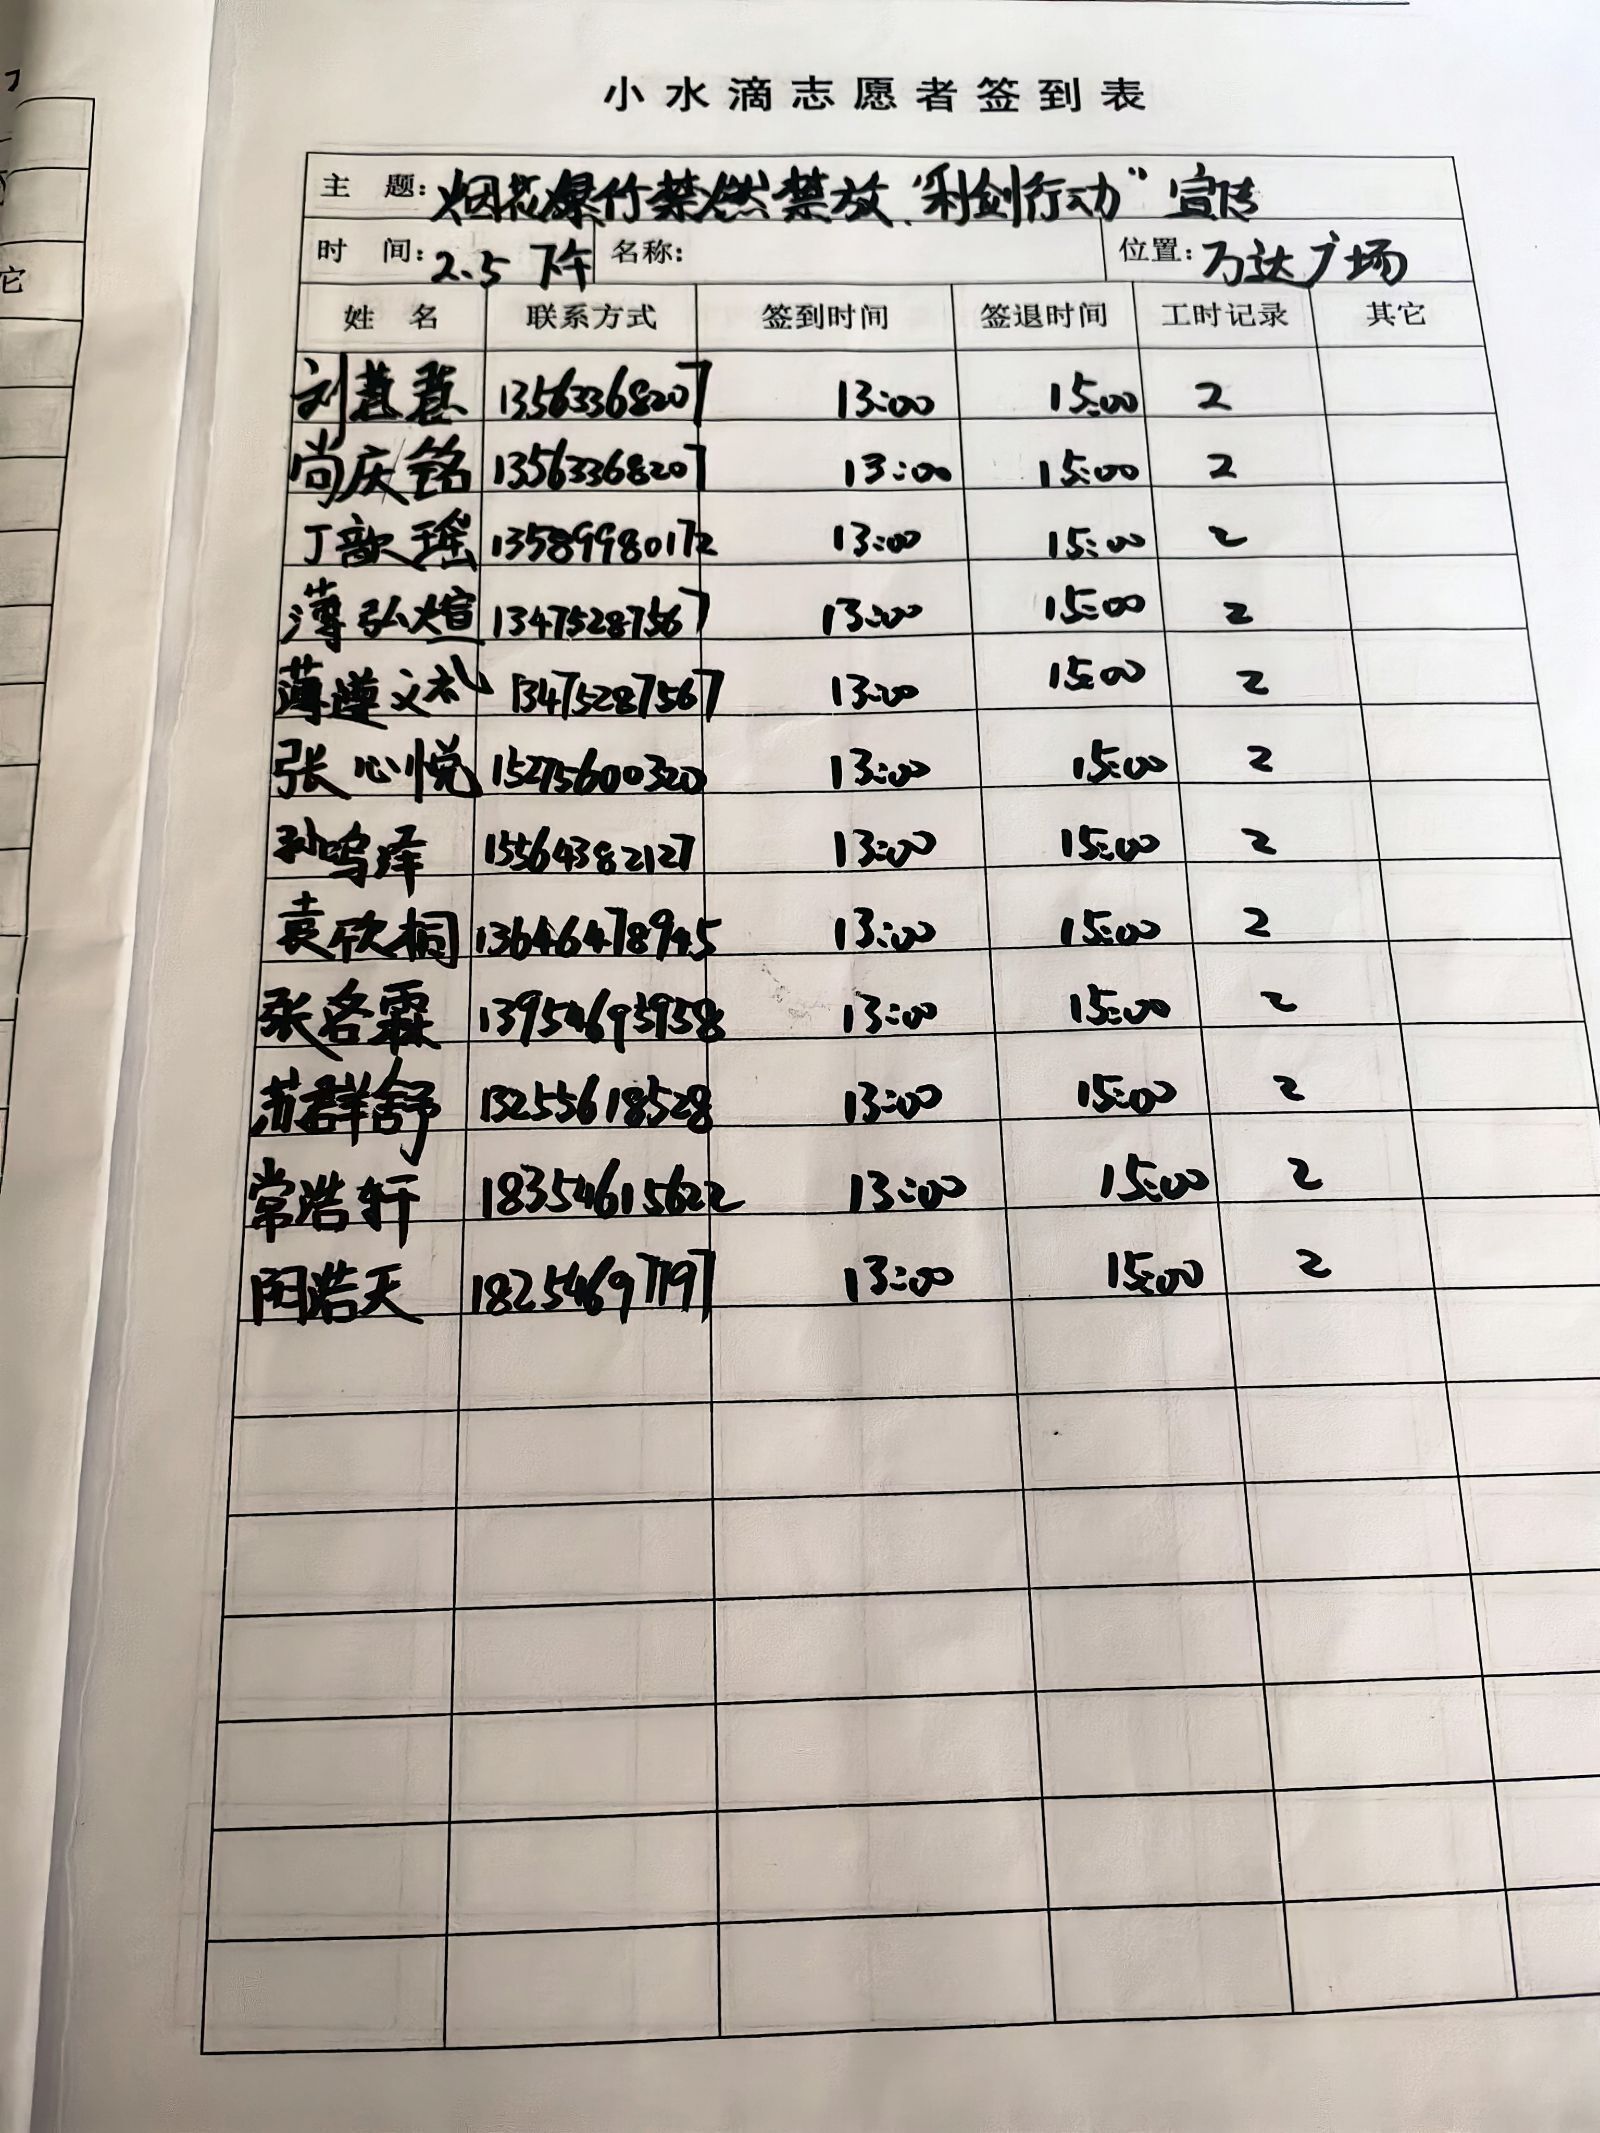 小水滴志愿者签到表
主 题: 烟花爆竹禁燃禁放"利剑行动"宣传
时 间: 2.5 下午 名称: 位置: 万达广场
姓 名 联系方式 签到时间 签退时间 工时记录 其它
刘 13563368207 13:00 15:00 2
尚庆铭 13563368207 13:00 15:00 2
丁歆瑶 13589980172 13:00 15:00 2
薄弘煊 13475287567 13:00 15:00 2
薄遵文 13475287567 13:00 15:00 2
张心悦 15275600320 13:00 15:00 2
孙鸣泽 15564382127 13:00 15:00 2
袁欣桐 13646478945 13:00 15:00 2
张名霖 13954695958 13:00 15:00 2
苏群舒 13255618528 13:00 15:00 2
常浩轩 18354615622 13:00 15:00 2
浩天 18254697197 13:00 15:00 2
它